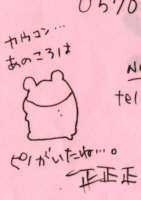 0570
カウコン…
あのころは
N
tel
ピノがいたね…。
正正正